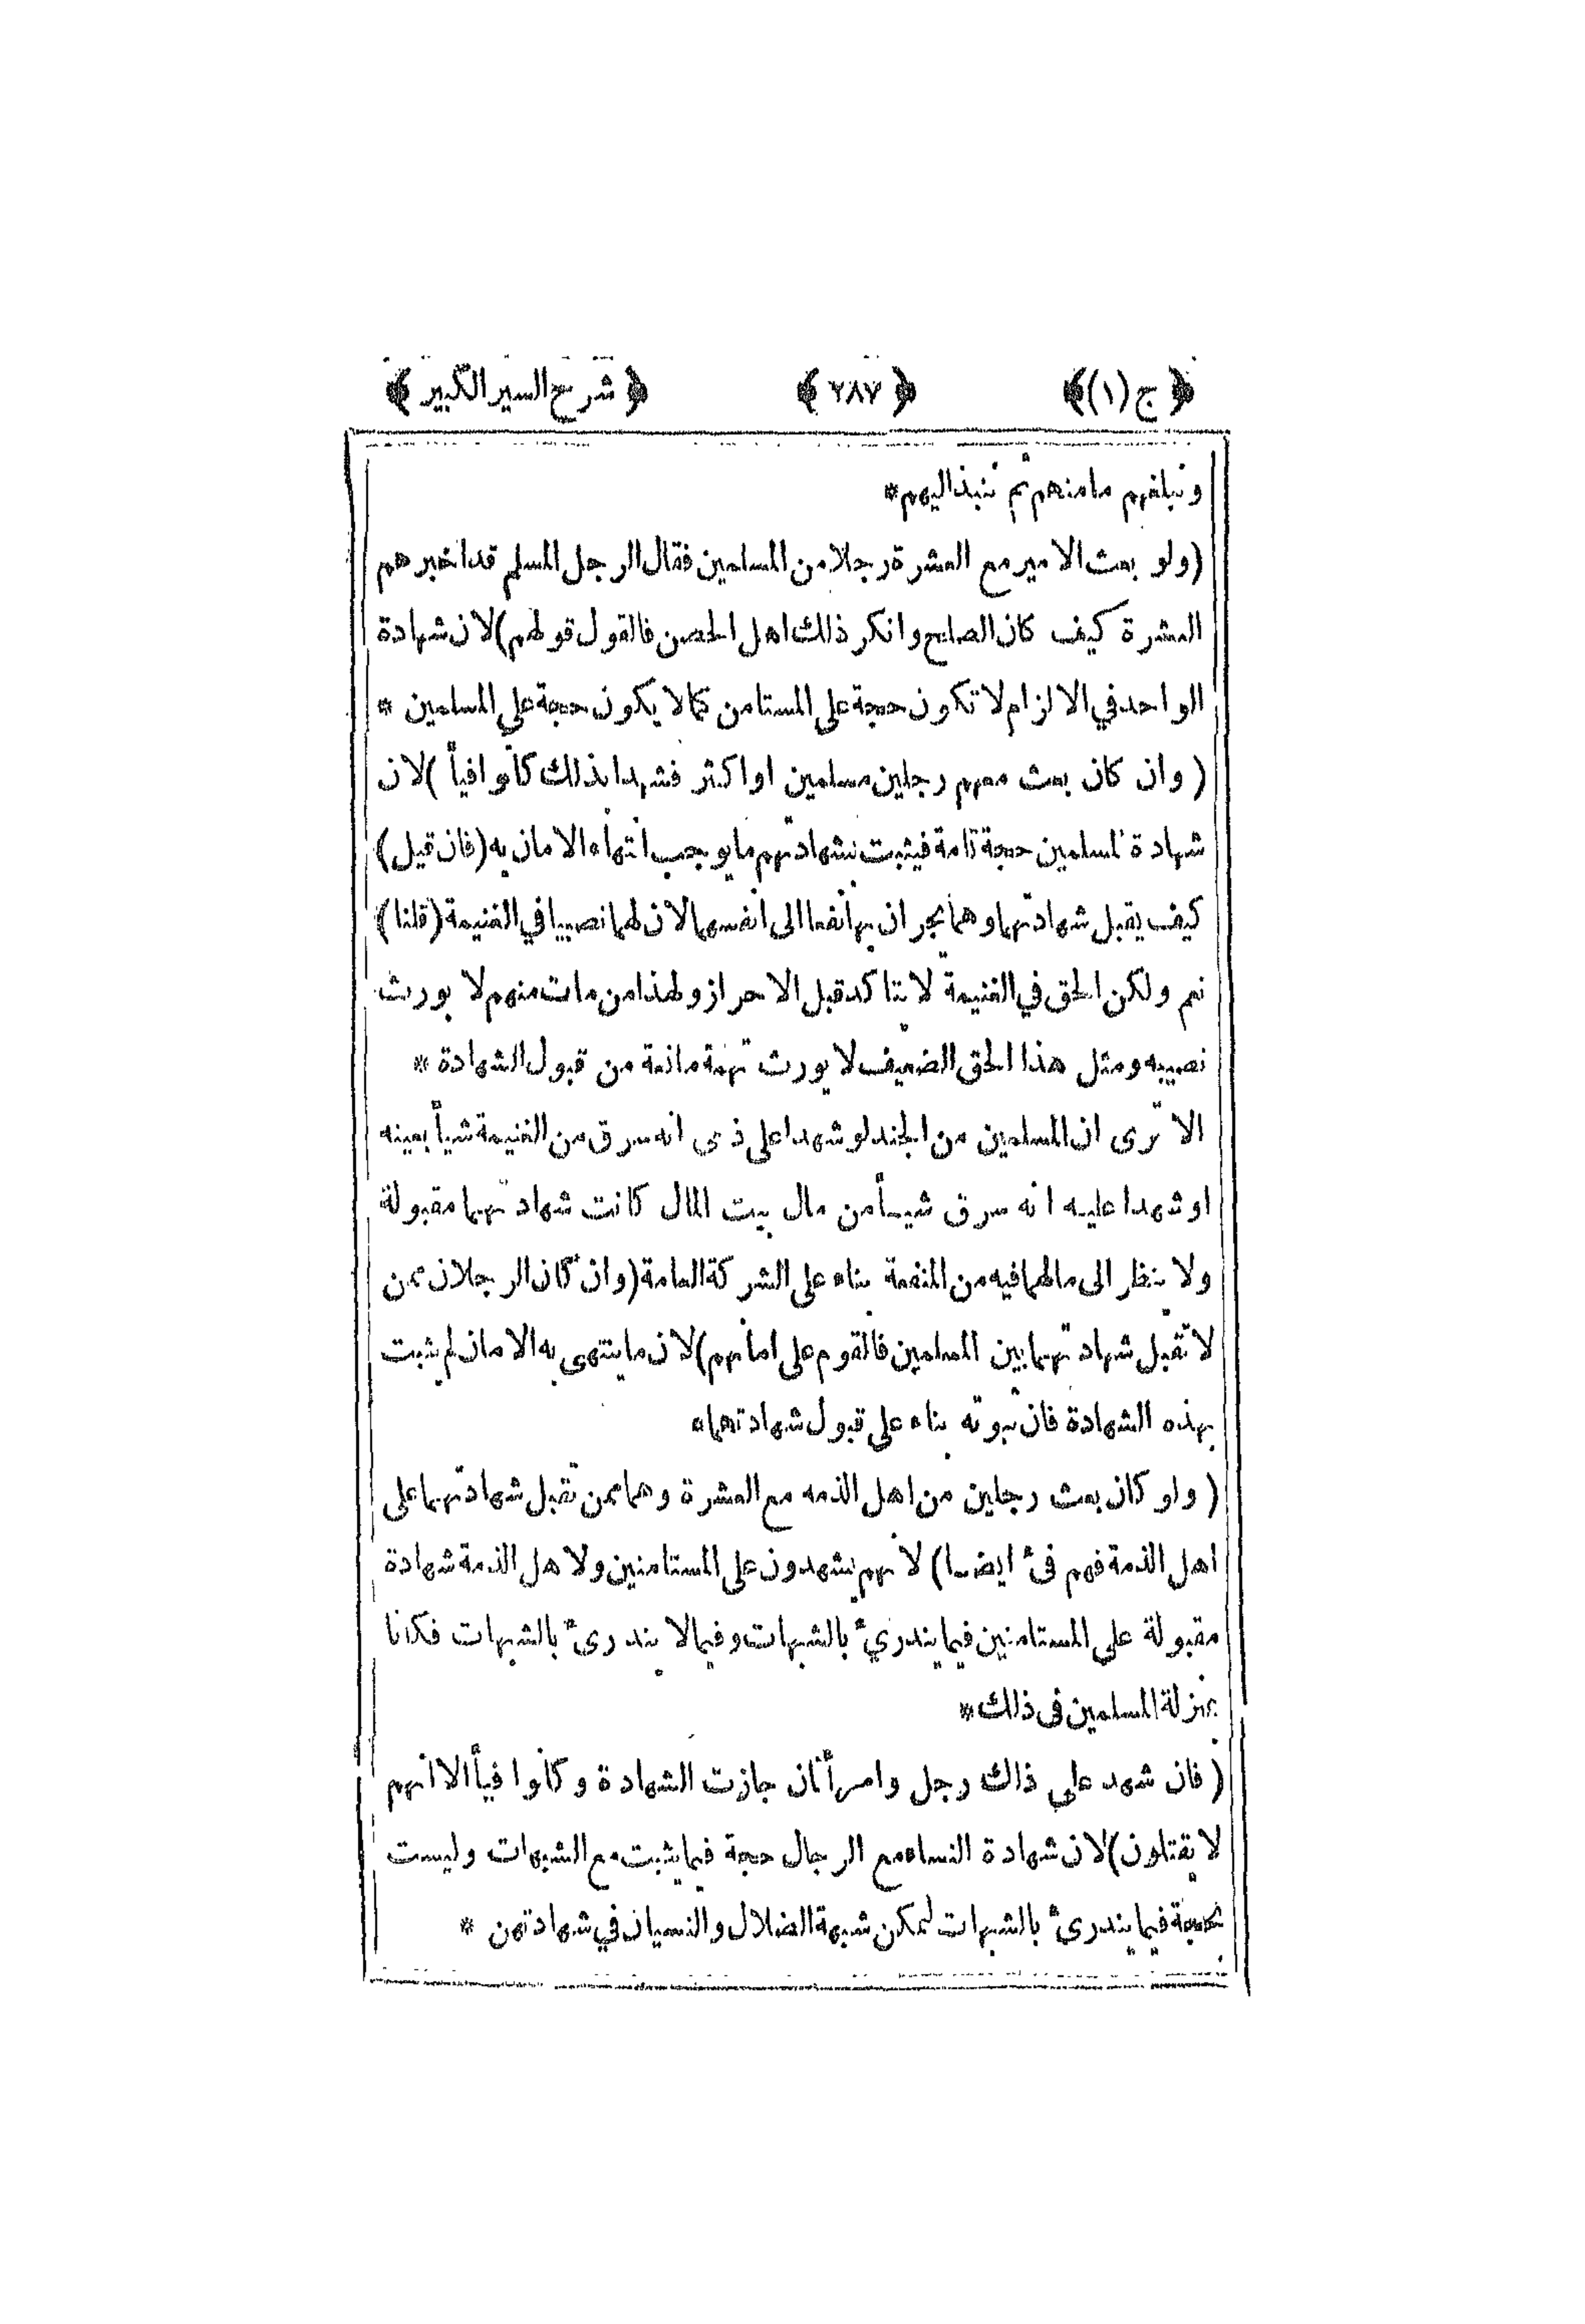 ﴿ ج (١) ﴾ ﴿ ٢٨٧ ﴾ ﴿ شرح السير الكبير ﴾
ونبلغهم مامنهم ثم ننبذ اليهم *
(ولو بعث الامير مع العشرة رجلا من المسلمين فقال الرجل المسلم قد اخبرهم
العشرة كيف كان الصلح وانكر ذلك اهل الحصن فالقول قولهم) لان شهادة
الواحد في الالزام لا تكون حجة على المستامن كما لا يكون حجة على المسلمين *
( وان كان بعث معهم رجلين مسلمين او اكثر فشهدا بذلك كانوا فيأ ) لان
شهادة المسلمين حجة تامة فيثبت بشهادتهم ما يوجب انتهاء الامان به (فان قيل)
كيف يقبل شهادتهما وهما يجران بها نفعا الى انفسهما لان لهما نصيبا في الغنيمة (قلنا)
نعم ولكن الحق في الغنيمة لا يتاكد قبل الاحراز ولهذا من مات منهم لا يورث
نصيبه ومثل هذا الحق الضعيف لا يورث تهمة مانعة من قبول الشهادة *
الا ترى ان المسلمين من الجند لو شهدا على ذمى انه سرق من الغنيمة شيأ بعينه
او شهدا عليه انه سرق شيـأ من مال بيت المال كانت شهادتهما مقبولة
ولا ينظر الى ما لهما فيه من المنفعة بناء على الشركة العامة (وان كان الرجلان ممن
لا تقبل شهادتهما بين المسلمين فالقوم على امانهم) لان ما ينتهى به الامان لم يثبت
بهذه الشهادة فان ثبوته بناء على قبول شهادتهما ه
( ولو كان بعث رجلين من اهل الذمه مع العشرة وهما ممن تقبل شهادتهما على
اهل الذمة فهم فئ ايضا) لانهم يشهدون على المستامنين ولاهل الذمة شهادة
مقبولة على المستامنين فيما يندرئ بالشبهات وفيما لا يندرئ بالشبهات فكانا
بمنزلة المسلمين فى ذلك *
( فان شهد على ذلك رجل وامرأتان جازت الشهادة وكانوا فيأ الا انهم
لا يقتلون) لان شهادة النساء مع الرجال حجة فيما يثبت مع الشبهات وليست
بحجة فيما يندرئ بالشبهات لتمكن شبهة الضلال والنسيان في شهادتهن *